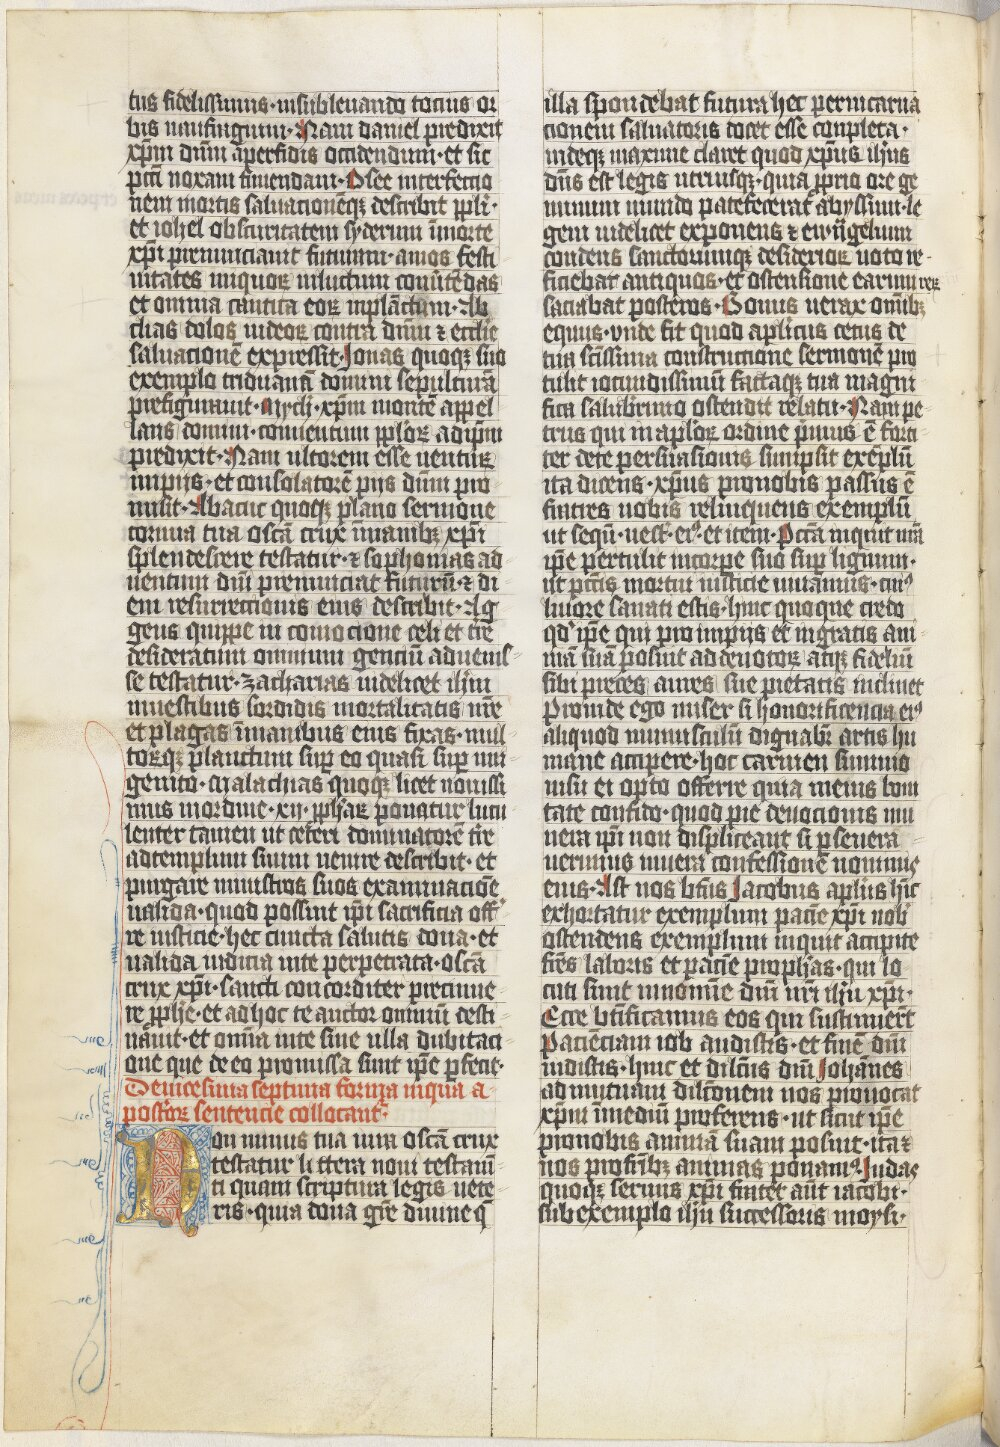 tus fidelissimus· insubleuando tocius or
bis naufragium· Nam daniel predixit
xp̄m dn̄m aperfidis occidendum· et sic
pctī noxam finiendam· Osee interfectio
nem mortis saluacionēqꝫ describit ppli·
et iohel obscuritatem syderum īmorte
xpī prenunciauit futurum· amos festi
uitates iniquoꝝ inluctum conūtēdas
et omnia cantica eoꝝ inplāctum· Ab
dias dolos iudeoꝝ contra dn̄m ⁊ ecclīe
saluacionē expressit· Jonas quoqꝫ suo
exemplo triduanā domini sepulturā
prefigurauit· Mych· xp̄m montē appel
lans domini· conuentum pploꝝ adip̄m
predixit· Nam ultorem esse uenturꝝ
impijs· et consolatorē pijs dn̄m pro
misit· Abacuc quoqꝫ plano sermone
cornua tua oscā crux īmanibꝫ xpī
splendescere testatur· ⁊ sophonias ad
uentum dn̄i prenunciat futurū· ⁊ di
em resurrectionis eius describit· Ag
geus quippe in comocione celi et tr̄e
desideratum omnium genciū aduenis
se testatur· Zacharias uidelicet ih̄m
inuestibus sordidis mortalitatis nr̄e
et plagas īmanibus eius fixas· mul
torꝝqꝫ planctum sup eo quasi sup uni
genito· Malachias quoqꝫ licet nouissi
mus inordine· xij· pphaꝝ ponatur lucu
lenter tamen ut ceteri dominatorē tr̄e
adtemplum suum uenire describit· et
purgare ministros suos examinaciōe
ualida· quod possint ip̄i sacrificia offer
re iusticie· hec cuncta salutis dona· et
ualida iudicia inte perpetrata· oscā
crux xpī· sancti concorditer precinue
re pphē· et ad hoc te auctor omniū desti
nāuit· et omīa inte sine ulla dubitaci
one que de eo promissa sunt ip̄e pfecit·
De uicesima septima forma inqua a
postoꝝ sentencie collocant·
Non minus tua uita oscā crux
testatur littera noui testam̄
ti quam scriptura legis uete
ris· quia dona grē diuine q̄
illa spondebat futura hec perincarna
cionem saluatoris docet esse conpleta·
indeqꝫ maxime claret quod xp̄us ih̄us
dn̄s est legis utriusqꝫ· quia pprio ore ge
minum mundo patefecerat abyssum· le
gem uidelicet exponens ⁊ ewāgelium
condens sanctorumqꝫ desiderioꝝ uoto re
ficiebat antiquos· et ostensione earum reꝝ
saciabat posteros· Bonus uerax omībꝫ
equus· vnde fit quod apl̄icus cetus de
tua scīssima constructione sermonē pro
tulit iocundissimū factaqꝫ tua magni
fica saluberrimo ostendit relatu· Nam pe
trus qui in apl̄oꝝ ordine p̄mus ē forti
ter de te persuasionis sumpsit exēplū
ita dicens· xp̄us pronobis passus ē
fratres uobis relinquens exemplū
ut seqū· uest· ei⁹· et item· Pctā inquit nr̄a
ip̄e pertulit incorpe suo sup lignum·
ut pctīs mortui iusticie uiuamus· cui⁹
liuore sanati estis· hinc quoque credo
qd ip̄e qui pro impijs et ingratis ani
mā suā posuit ad deuotoꝝ atqꝫ fideliū
sibi preces aures sue pietatis inclinet
Proinde ego miser si honorificencia ei⁹
aliquod munusculū dignabr̄ artis hu
mane accipere· hoc carmen summo
nisu ei opto offerre quia meius boni
tate confido· quod pie deuocionis mu
nera ip̄i non displiceant si pseuera
uerimus inuera confessionē nominis
eius· Ast nos bt̄us Jacobus apl̄us hīc
exhortatur exemplum pacīe xpī nob
ostendens exemplum inquit accipite
fr̄es laboris et pacīe prophas· qui lo
cuti sunt innomine dn̄i nr̄i ih̄u xpī·
Ecce bt̄ificamus eos qui sustinuer̄t
Pacienciam iob audistis· et finē dn̄i
uidistis· hinc et dilcūs dn̄i Johānes
ad mutuam dilcōnem nos prouocat
xp̄m īmediū proferens· ut sicut ip̄e
pronobis animā suam posuit· ita ⁊
nos profr̄ibꝫ animas ponam⁹· Judas
quoqꝫ seruus xpī frater aūt iacobi·
sub exemplo ih̄u successoris moysi·